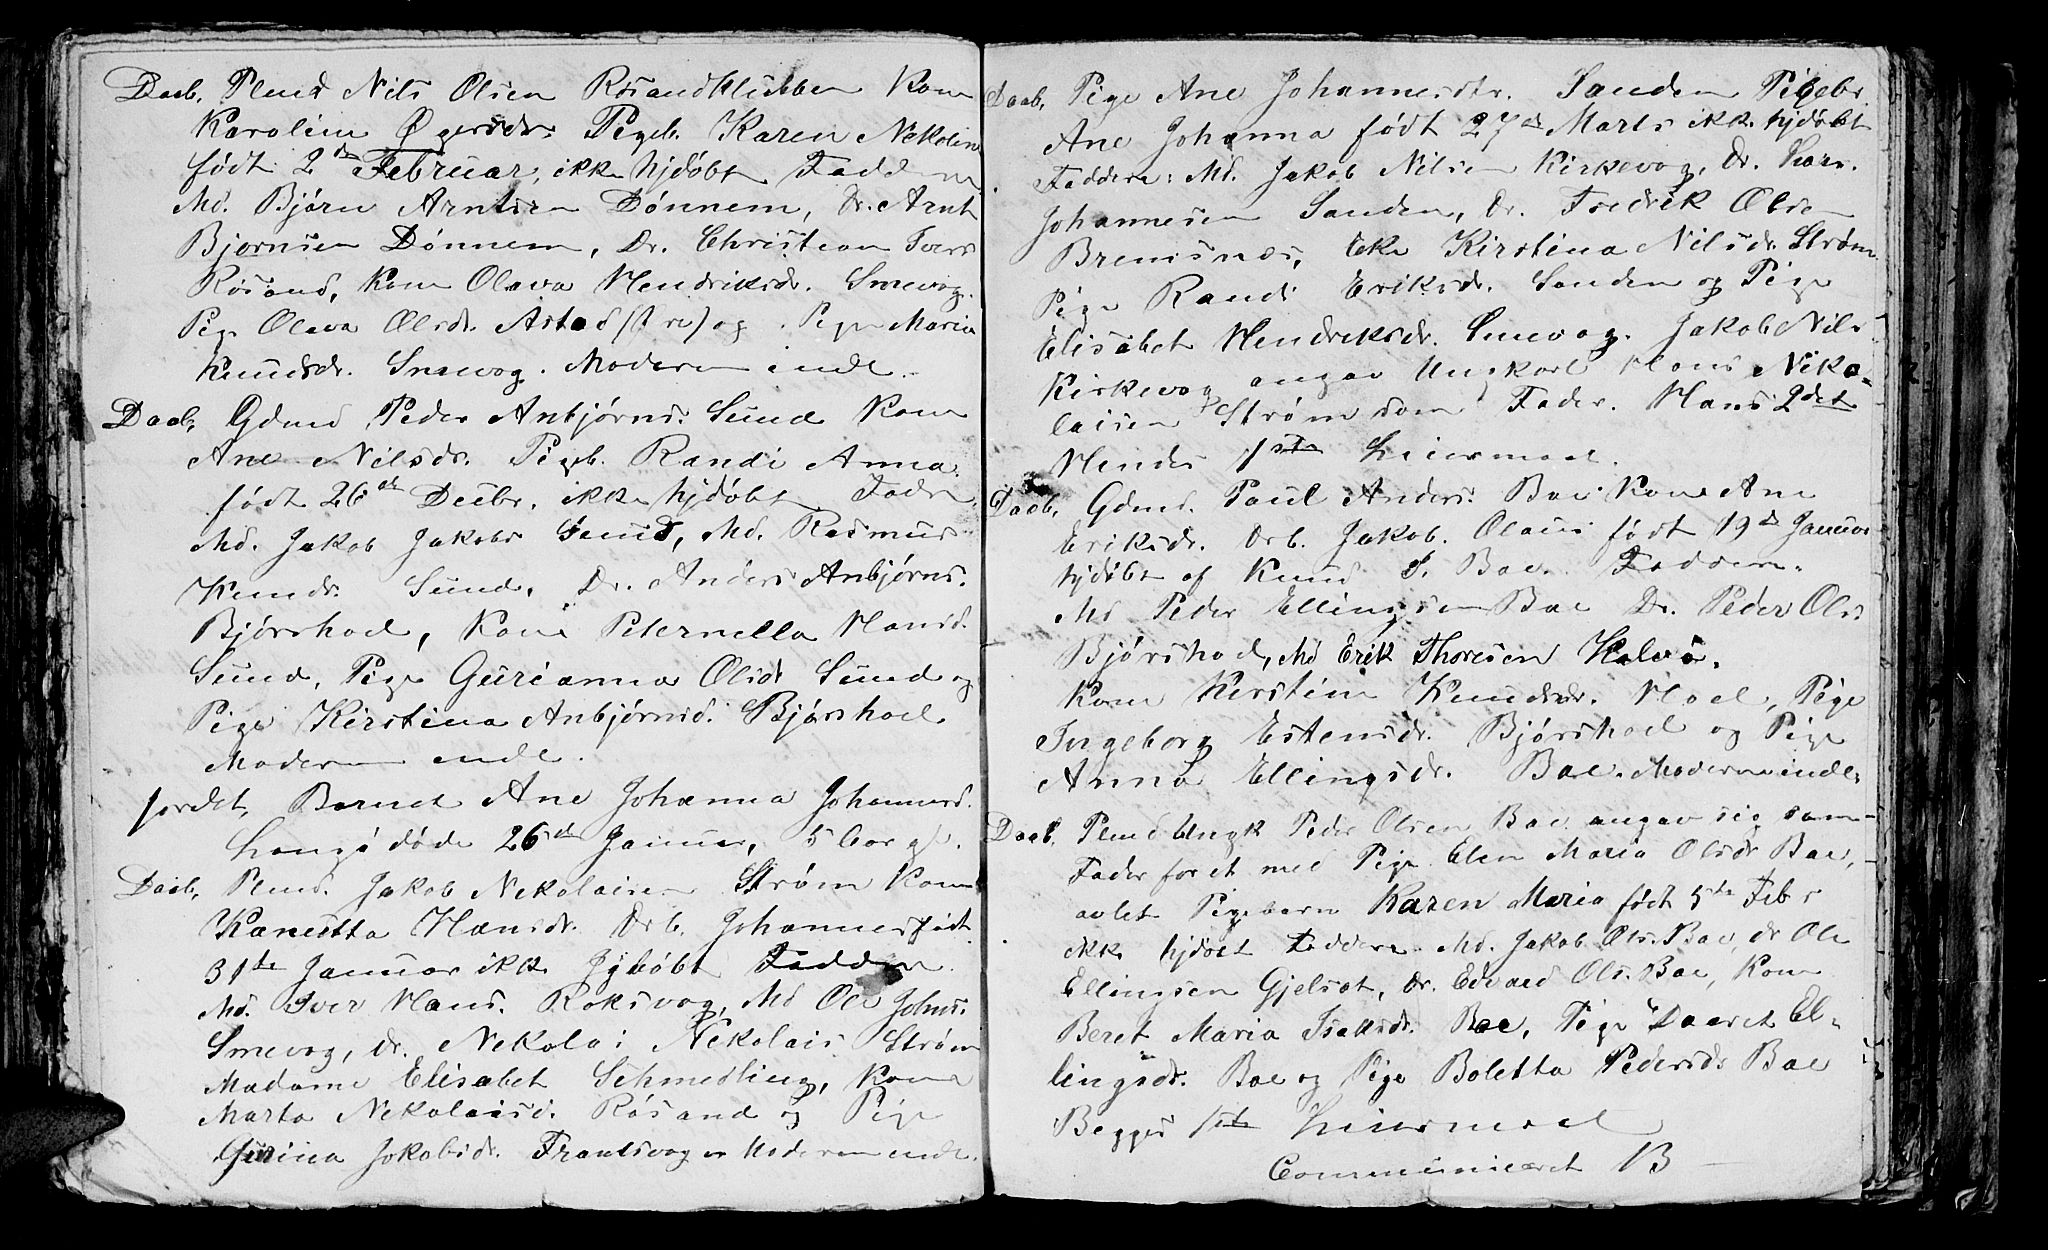 Daab, Plmd Nils Olsen Røsandklubben Kone
Karolin Øgersdr. Pigeb. Karen Nekolin
født 2den Februar, ikke hjdøbt Faddere
Md. Bjørn Arntsen Dønnem, Dr. Arnt
Bjørnsen Dønnem, Dr. Christian Ivers
Røsand, Kone Olava Hendriksdr. Smevog.
Pige Olava Olsdr. Astad og Pige Maria
Knudsdr. Smevog. Moderen indl.
Daab, Gdmd Peder Anbjørns. Sund Kone
Ane Nilsdr. Pigeb. Randi Anna
født 26de Decbr. ikke hjdøbt Fadre
Md. Jakob Jakobs Sund, Md. Rasmus
Knuds. Sund, Dr. Anders Anbjørns.
Bjørshoel, Kone Peternella Hansd.
Sund, Pige Gurianna Olsdr Sund og
Pige Kirstina Anbjørnsd. Bjørshoel
Moderen indl.
jordet, Barnet Ane Johanna Johannesd.
Langø døde 26de Januar, 5 Aar gl.
Daab, Plmd. Jakob Nekolaisen Strøm Kone
Kanutta Hansdr. Drb. Johannes født
31te Januar ikke hjdøbt Faddere
Md. Iver Hans. Roksvog, Md Ole Johns.
Smevog, Dr. Nekolai Nekolais Strøm
Madame Elisabet Schmedling, Kone
Marta Nekolaisd. Røsand og Pige
Gurina Jakobsdr. Frantsvog Moderen indl.
Daab, Pige Ane Johannesdr. Sanden Pigebr.
Ane Johanna født 27de Marts ikke hjdøbt
Faddere: Md. Jakob Nilsen Kirkevog, Dr. Lars.
Johannesen Sanden, Dr. Fredrik Olsen
Bremsnæs, Eke Kirstina Nilsdr. Strøm
Pige Randi Eriksdr. Sanden og Pige
Elisabet Hendriksdr. Smevog. Jakob Nils
Kirkevog angav Ungkarl Hans Niko-
laisen Strøm som Fader. Hans 2det
Hendes 1ste Leiermaal.
Daab, Gdmd. Paul Anders. Bae Kone Ane
Eriksdr. Drb. Jakob Olaus født 19de Januar
hjdøbt af Knud S. Bae. Faddere.
Md Peder Ellingsen Bae Dr. Peder Ols.
Bjørshoel, Md Erik Thoresen Halvø.
Kone Kirstin Knudsdr. Hoel, Pige
Ingeborg Estensdr. Bjørshoel og Pige
Anna Ellingsdr. Bae. Moderen indl.
Daab, Plmd Ungk Peder Olsen Bae angav sig som
Fader for et med Pige Elen Maria Olsdr Bae,
avlet Pigebarn Karen Maria født 5te Febr
ikke hjdøbt Faddere Md. Jakob Ols. Bae, dr Ole
Ellingsen Gjelsøt, Dr. Edvard Ols. Bae, Kone
Beret Maria Isaksdr. Bae, Pige Daaret El-
lingsdr. Bae og Pige Boletta Pedersdr Bae
Begges 1ste Leiermaal
Communiceret 13